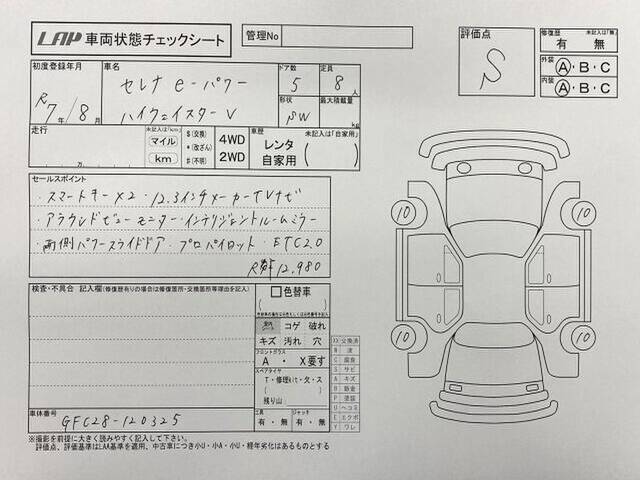 LAP 車両状態チェックシート
管理No
評価点
S
修復歴 未記入は「無」
有 無
外装 A・B・C
内装 A・B・C
初度登録年月
R7年/8月
車名
セレナ e-パワー
ハイウェイスターV
ドア数
5
定員
8人
形状
SW
最大積載量
kg
走行
未記入は「km」
マイル
km
$(交換)
*(改ざん)
#(不明)
4WD
2WD
車歴 未記入は「自家用」
レンタ
自家用
セールスポイント
・スマートキー×2 ・12.3インチメーカーTVナビ
・アラウンドビューモニター・インテリジェントルームミラー
・両側パワースライドドア・プロパイロット・ETC2.0
12,980
検査・不具合 記入欄(修復歴有りの場合は修復箇所・交換箇所等理由を記入)
色替車
コゲ 破れ
キズ 汚れ 穴
フロントガラス
A ・ X要す
スペアタイヤ
T・修理kit・欠・ス
残り山
工具
有・無
ジャッキ
有・無
車体番号
GFC28-120325
XX 交換済
W 波
C 腐食
S サビ
A キズ
B 鈑金
P 塗装
U ヘコミ
E エクボ
Y ワレ
10
10
10
10
※撮影を前提に大きく読みやすく記入して下さい。
評価点、評価基準はLAA基準を適用、中古車につき小U・小A・小U・経年劣化はあるものとする